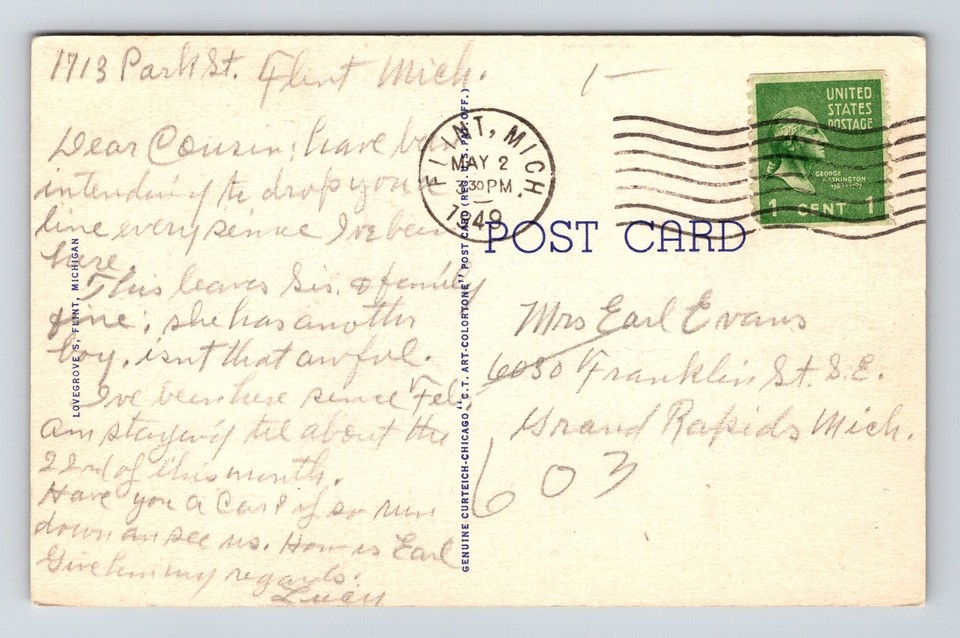 1713 Park St. Flint Mich.
Dear Cousin; have been
intending to drop you a
line every sence I've been
here.
This leaves Sis. & family
fine; she has another
boy. isnt that awful.
I've been here since Feb,
am staying til about the
22nd of this month.
Have you a Car? if so run
down an see us. How is Earl
Give him my regards.
Lucy
LOVEGROVE'S, FLINT, MICHIGAN
GENUINE CURTEICH-CHICAGO "C.T. ART-COLORTONE" POST CARD (REG. U.S. PAT. OFF.)
1—
FLINT, MICH.
MAY 2
3 30 PM
1949
UNITED
STATES
POSTAGE
GEORGE
WASHINGTON
1789-1797
1 CENT 1
POST CARD
Mrs Earl Evans
6030 Franklin St. S.E.
Grand Rapids Mich.
603